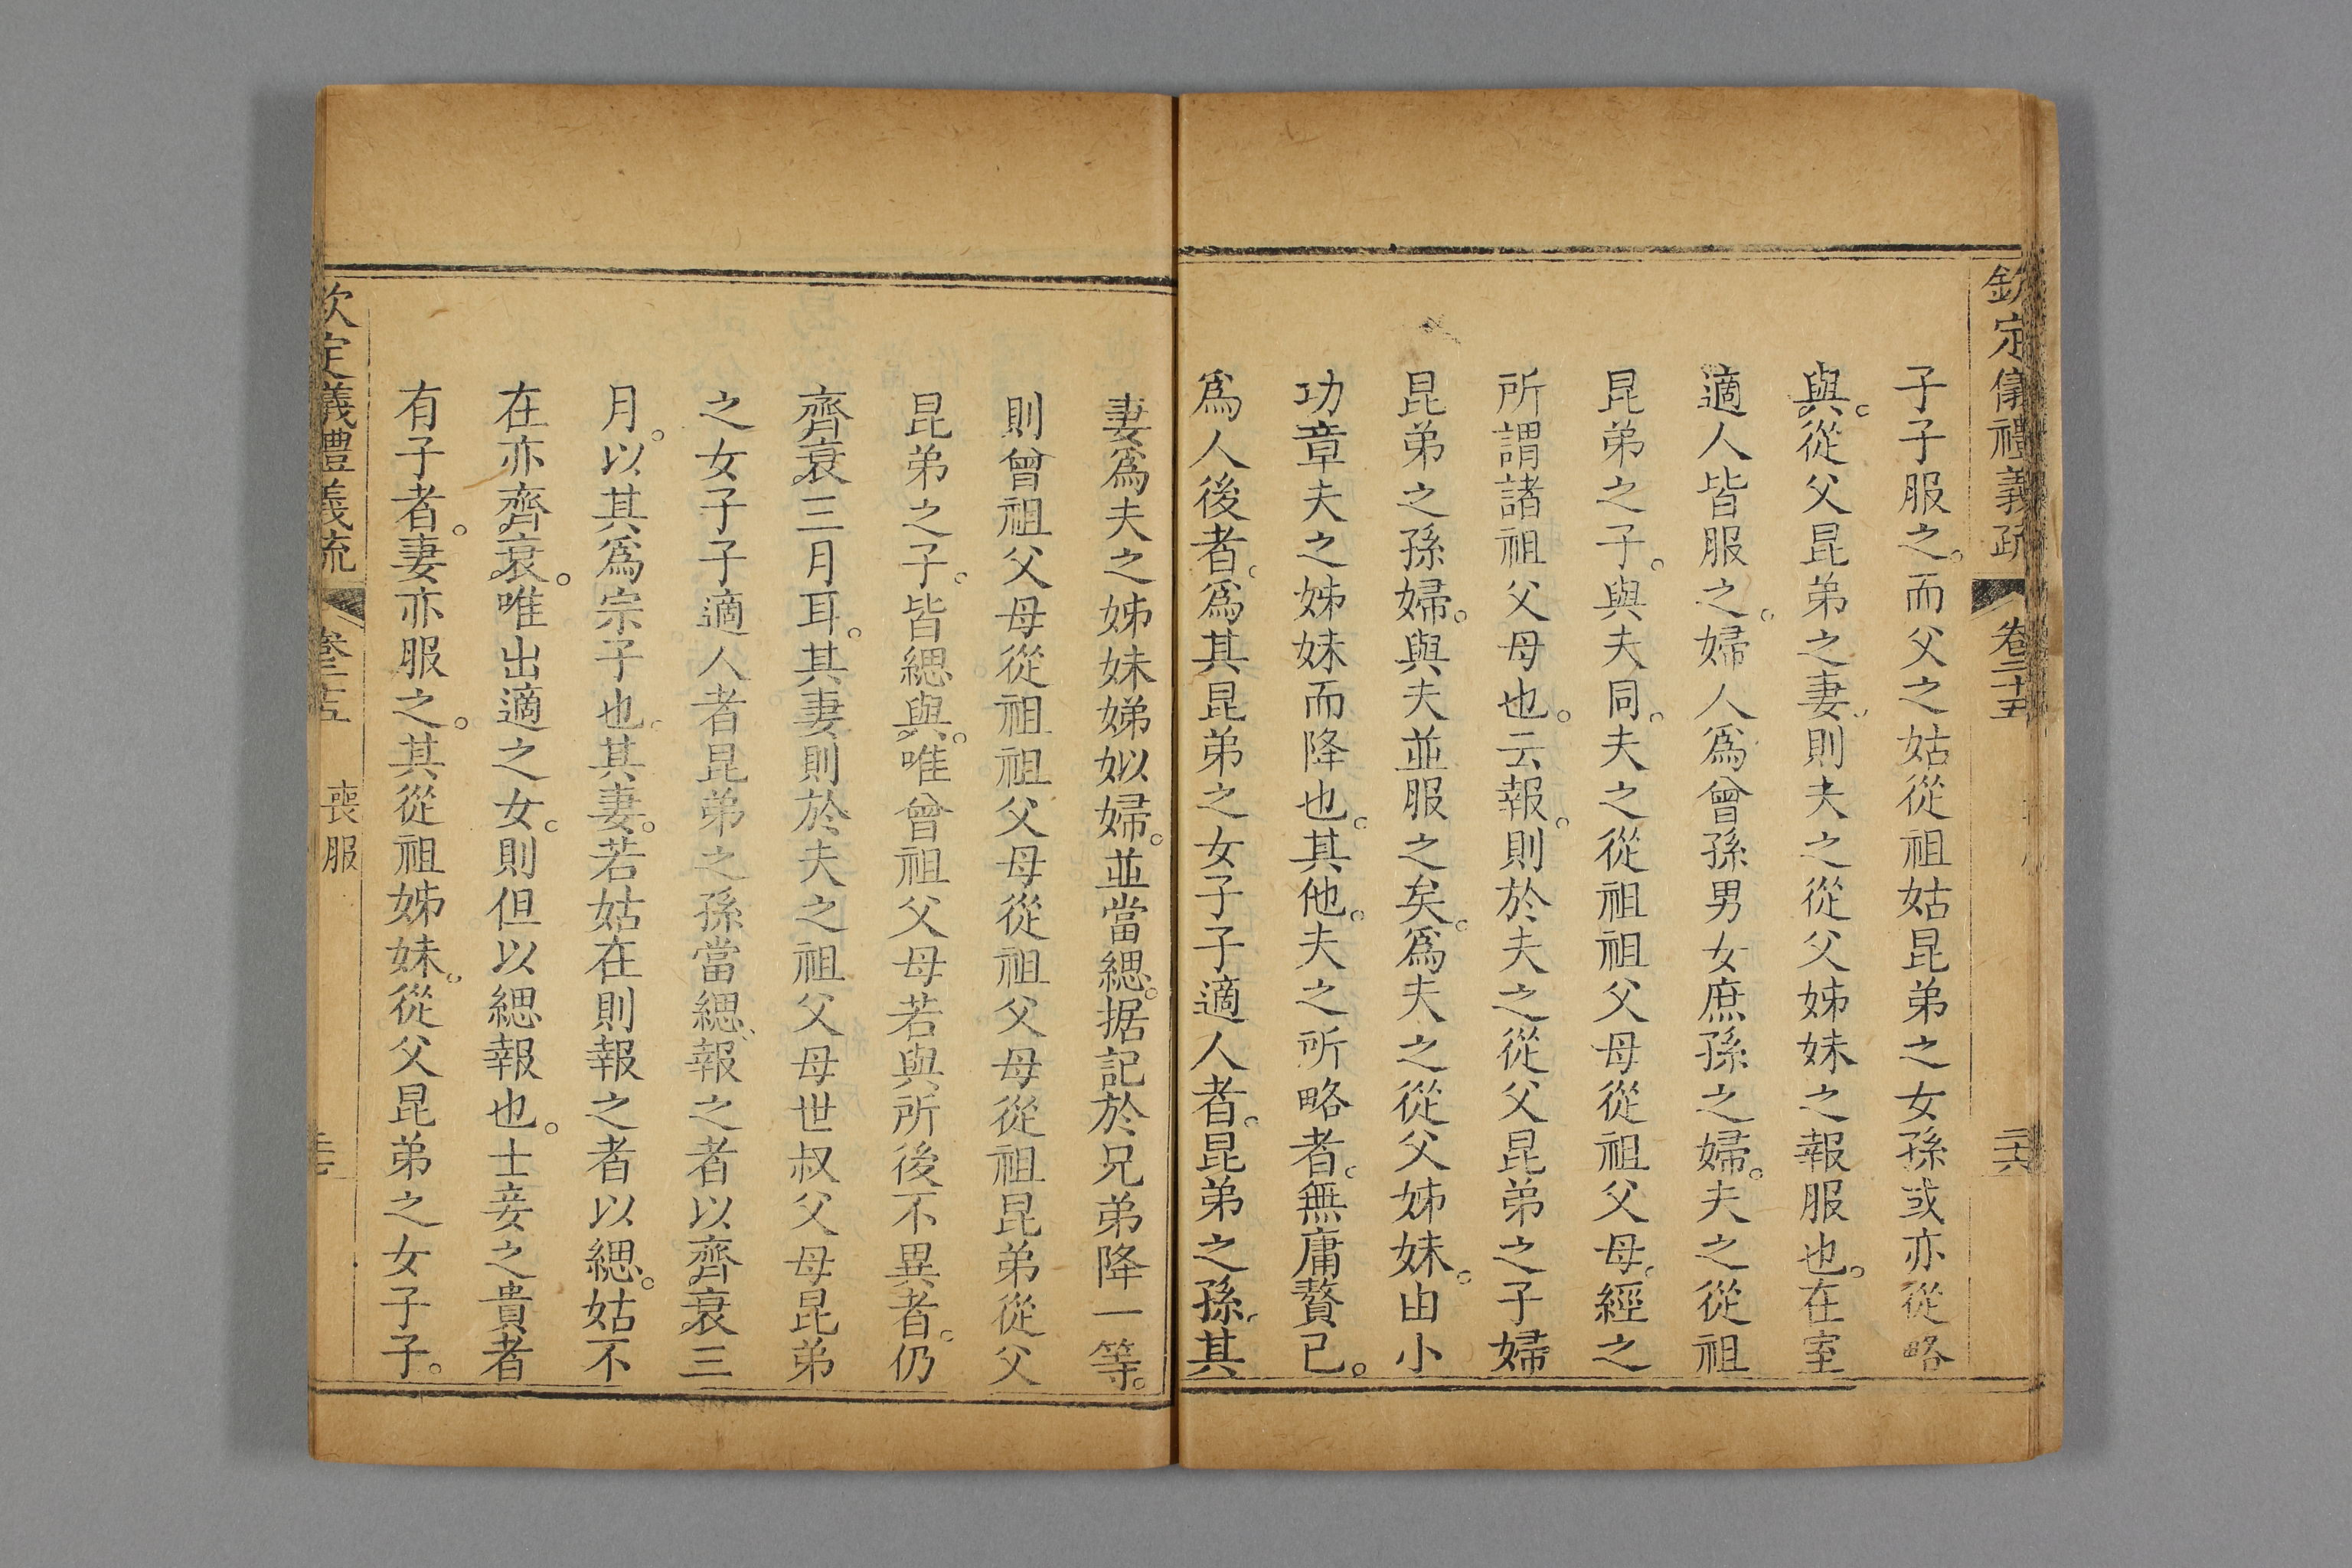 欽定儀禮義疏 卷二十五 二六
子子服之。而父之姑從祖姑昆弟之女孫或亦從略
與。從父昆弟之妻、則夫之從父姊妹之報服也。在室
適人皆服之。婦人爲曾孫男女庶孫之婦。夫之從祖
昆弟之子。與夫同。夫之從祖祖父母從祖父母。經之
所謂諸祖父母也。云報。則於夫之從父昆弟之子婦
昆弟之孫婦。與夫並服之矣。爲夫之從父姊妹。由小
功章夫之姊妹而降也。其他。夫之所略者。無庸贅已。
爲人後者。爲其昆弟之女子子適人者。昆弟之孫、其
妻爲夫之姊妹娣姒婦。並當緦。据記於兄弟降一等。
則曾祖父母從祖祖父母從祖父母從祖昆弟從父
昆弟之子。皆緦與。唯曾祖父母若與所後不異者。仍
齊衰三月耳。其妻則於夫之祖父母世叔父母昆弟
之女子子適人者昆弟之孫當緦、報之者以齊衰三
月。以其爲宗子也。其妻。若姑在則報之者以緦。姑不
在亦齊衰。唯出適之女。則但以緦報也。士妾之貴者
有子者。妻亦服之。其從祖姊妹。從父昆弟之女子子。
欽定儀禮義疏 卷二十五 喪服